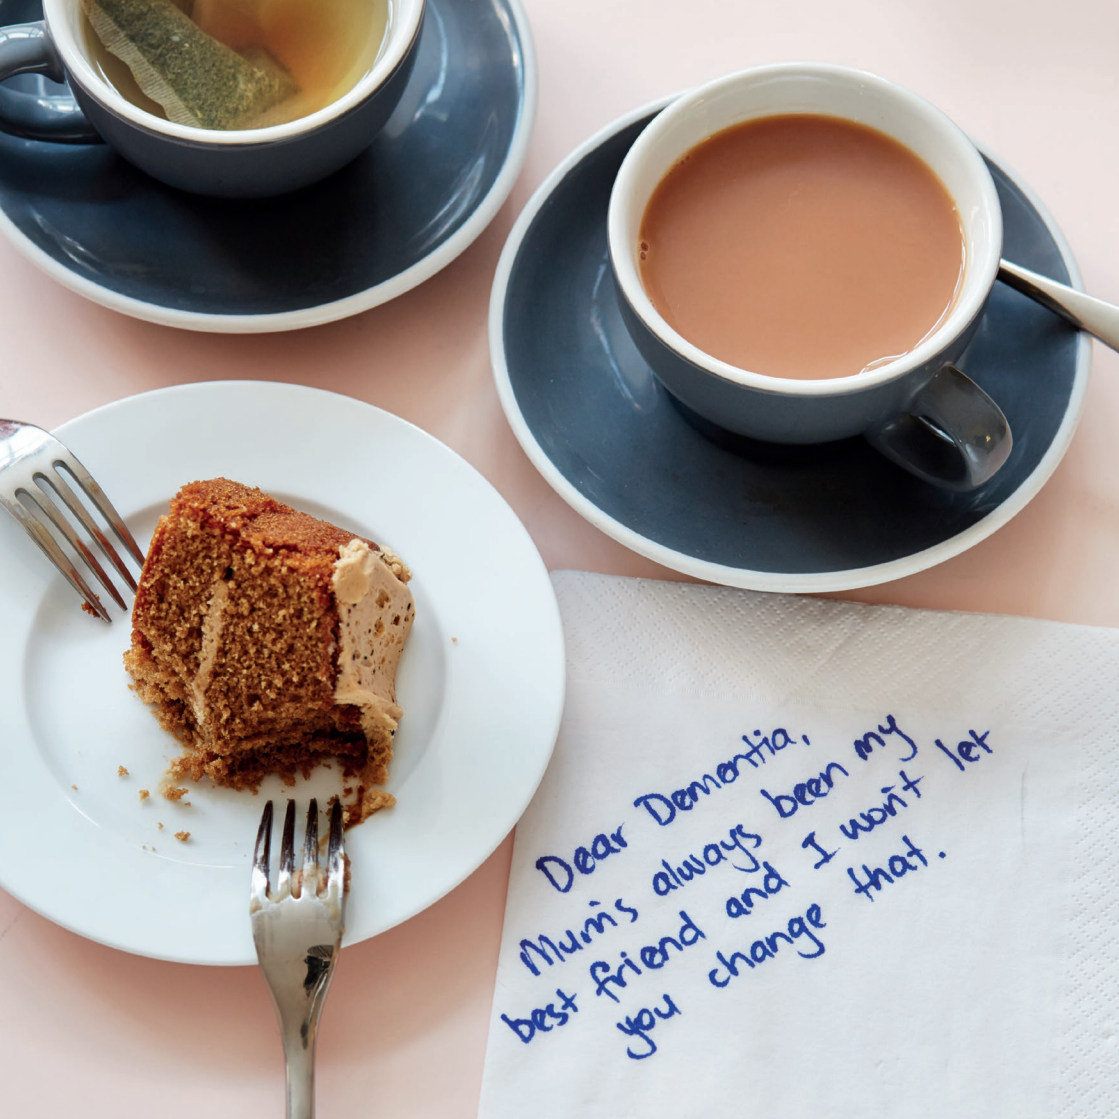 Dear Dementia,
Mum's always been my
best friend and I won't let
you change that.